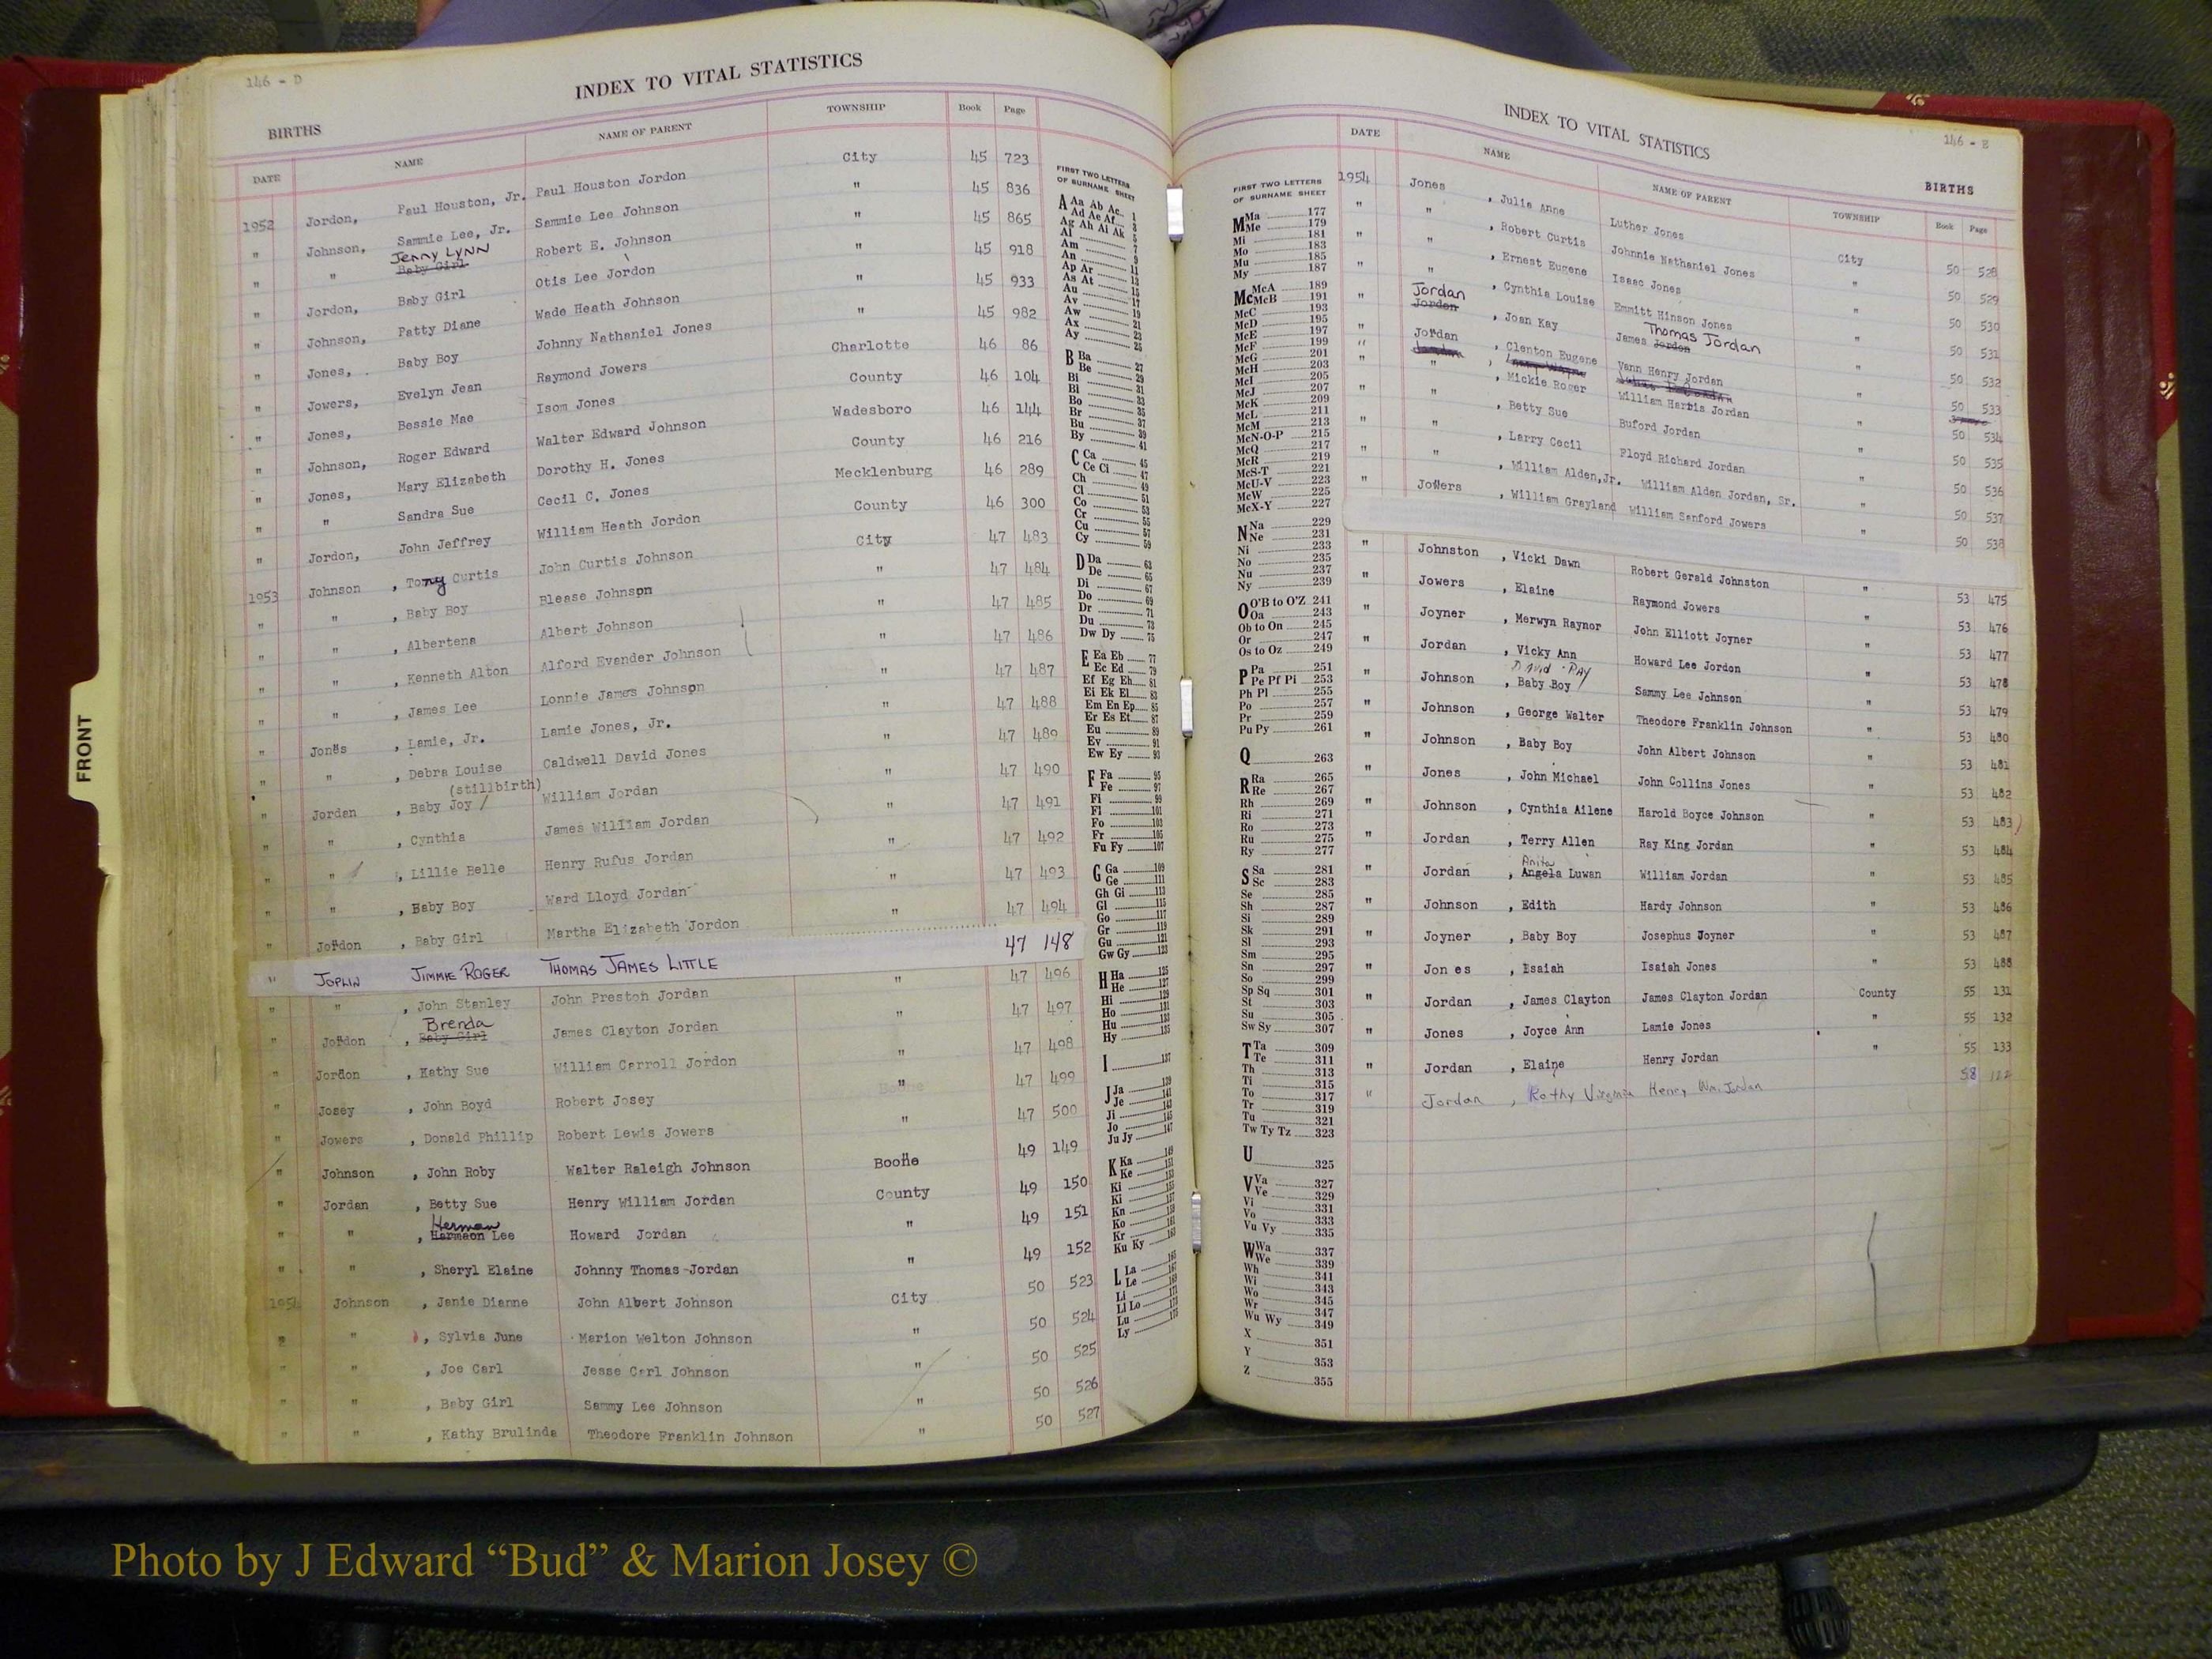 146 - D
INDEX TO VITAL STATISTICS
BIRTHS
DATE NAME NAME OF PARENT TOWNSHIP Book Page
1952 Jordon, Paul Houston, Jr. Paul Houston Jordon City 45 723
" Johnson, Sammie Lee, Jr. Sammie Lee Johnson " 45 836
" " Jenny Lynn Baby Girl Robert E. Johnson " 45 865
" Jordon, Baby Girl Otis Lee Jordon " 45 918
" Johnson, Patty Diane Wade Heath Johnson " 45 933
" Jones, Baby Boy Johnny Nathaniel Jones " 45 982
" Jowers, Evelyn Jean Raymond Jowers Charlotte 46 86
" Jones, Bessie Mae Isom Jones County 46 104
" Johnson, Roger Edward Walter Edward Johnson Wadesboro 46 144
" Jones, Mary Elizabeth Dorothy H. Jones County 46 216
" " Sandra Sue Cecil C. Jones Mecklenburg 46 289
" Jordon, John Jeffrey William Heath Jordon County 46 300
1953 Johnson , Tony Curtis John Curtis Johnson City 47 483
" " , Baby Boy Blease Johnson " 47 484
" " , Albertena Albert Johnson " 47 485
" " , Kenneth Alton Alford Evander Johnson " 47 486
" " , James Lee Lonnie James Johnson " 47 487
" Jones , Lamie, Jr. Lamie Jones, Jr. " 47 488
" " , Debra Louise Caldwell David Jones " 47 489
(stillbirth)
" Jordan , Baby Joy / William Jordan " 47 490
" " , Cynthia James William Jordan " 47 491
" " , Lillie Belle Henry Rufus Jordan " 47 492
" " , Baby Boy Ward Lloyd Jordan " 47 493
" Jordon , Baby Girl Martha Elizabeth Jordon " 47 494
" JOPLIN JIMMIE ROGER THOMAS JAMES LITTLE 47 148
" " , John Stanley John Preston Jordan " 47 496
" Jordon , Brenda Baby Girl James Clayton Jordan 47 497
" Jordon , Kathy Sue William Carroll Jordon " 47 498
" Josey , John Boyd Robert Josey " 47 499
" Jowers , Donald Phillip Robert Lewis Jowers " 47 500
" Johnson , John Roby Walter Raleigh Johnson Boone 49 149
" Jordan , Betty Sue Henry William Jordan County 49 150
" " , Herman Harmaon Lee Howard Jordan " 49 151
" " , Sheryl Elaine Johnny Thomas Jordan " 49 152
1954 Johnson , Janie Dianne John Albert Johnson City 50 523
" " , Sylvia June Marion Welton Johnson " 50 524
" " , Joe Carl Jesse Carl Johnson " 50 525
" " , Baby Girl Sammy Lee Johnson " 50 526
" " , Kathy Brulinda Theodore Franklin Johnson " 50 527
FRONT
FIRST TWO LETTERS
OF SURNAME SHEET
A Aa Ab Ac 1
Ad Ae Af 3
Ag Ah Ai Ak 5
Al 7
Am 9
An 11
Ap Ar 13
As At 15
Au 17
Av 19
Aw 21
Ax 23
Ay 25
B Ba 27
Be 29
Bi 31
Bl 33
Bo 35
Br 37
Bu 39
By 41
C Ca 45
Ce Ci 47
Ch 49
Cl 51
Co 53
Cr 55
Cu 57
Cy 59
D Da 63
De 65
Di 67
Do 69
Dr 71
Du 73
Dw Dy 75
E Ea Eb 77
Ec Ed 79
Ef Eg Eh 81
Ei Ek El 83
Em En Ep 85
Er Es Et 87
Eu 89
Ev 91
Ew Ey 93
F Fa 95
Fe 97
Fi 99
Fl 101
Fo 103
Fr 105
Fu Fy 107
G Ga 109
Ge 111
Gh Gi 113
Gl 115
Go 117
Gr 119
Gu 121
Gw Gy 123
H Ha 125
He 127
Hi 129
Ho 131
Hu 133
Hy 135
I 137
J Ja 139
Je 141
Ji 143
Jo 145
Ju Jy 147
K Ka 149
Ke 151
Ki 153
Kl 155
Kn 157
Ko 159
Kr 161
Ku Ky 163
L La 165
Le 167
Li 169
Ll Lo 171
Lu 173
Ly 175
INDEX TO VITAL STATISTICS
146 - E
BIRTHS
FIRST TWO LETTERS
OF SURNAME SHEET
M Ma 177
Me 179
Mi 181
Mo 183
Mu 185
My 187
Mc McA 189
McB 191
McC 193
McD 195
McE 197
McF 199
McG 201
McH 203
McI 205
McJ 207
McK 209
McL 211
McM 213
McN-O-P 215
McQ 217
McR 219
McS-T 221
McU-V 223
McW 225
McX-Y 227
N Na 229
Ne 231
Ni 233
No 235
Nu 237
Ny 239
O O'B to O'Z 241
Oa 243
Ob to On 245
Or 247
Os to Oz 249
P Pa 251
Pe Pf Pi 253
Ph Pl 255
Po 257
Pr 259
Pu Py 261
Q 263
R Ra 265
Re 267
Rh 269
Ri 271
Ro 273
Ru 275
Ry 277
S Sa 281
Sc 283
Se 285
Sh 287
Si 289
Sk 291
Sl 293
Sm 295
Sn 297
So 299
Sp Sq 301
St 303
Su 305
Sw Sy 307
T Ta 309
Te 311
Th 313
Ti 315
To 317
Tr 319
Tu 321
Tw Ty Tz 323
U 325
V Va 327
Ve 329
Vi 331
Vo 333
Vu Vy 335
W Wa 337
We 339
Wh 341
Wi 343
Wo 345
Wr 347
Wu Wy 349
X 351
Y 353
Z 355
DATE NAME NAME OF PARENT TOWNSHIP Book Page
1954 Jones , Julia Anne Luther Jones City 50 528
" " , Robert Curtis Johnnie Nathaniel Jones " 50 529
" " , Ernest Eugene Isaac Jones " 50 530
" " , Cynthia Louise Emmitt Hinson Jones " 50 531
" Jordan Jordon , Joan Kay James Jordon Thomas Jordan " 50 532
" Jordan , Clenton Eugene Vann Henry Jordan " 50 533
" " , Mickie Roger William Harbis Jordan " 50 534
" " , Betty Sue Buford Jordan " 50 535
" " , Larry Cecil Floyd Richard Jordan " 50 536
" " , William Alden, Jr. William Alden Jordan, Sr. " 50 537
" Jowers , William Grayland William Sanford Jowers " 50 538
" Johnston , Vicki Dawn Robert Gerald Johnston " 53 475
" Jowers , Elaine Raymond Jowers " 53 476
" Joyner , Merwyn Raynor John Elliott Joyner " 53 477
" Jordan , Vicky Ann Howard Lee Jordon " 53 478
" Johnson , David Ray Baby Boy Sammy Lee Johnson " 53 479
" Johnson , George Walter Theodore Franklin Johnson " 53 480
" Johnson , Baby Boy John Albert Johnson " 53 481
" Jones , John Michael John Collins Jones " 53 482
" Johnson , Cynthia Ailene Harold Boyce Johnson " 53 483
" Jordan , Terry Allen Ray King Jordan " 53 484
" Jordan , Anita Angela Luwan William Jordan " 53 485
" Johnson , Edith Hardy Johnson " 53 486
" Joyner , Baby Boy Josephus Joyner " 53 487
" Jones , Isaiah Isaiah Jones " 53 488
" Jordan , James Clayton James Clayton Jordan County 55 131
" Jones , Joyce Ann Lamie Jones " 55 132
" Jordan , Elaine Henry Jordan " 55 133
" Jordan , Kathy Virginia Henry Wm. Jordan 58 122
Photo by J Edward “Bud” & Marion Josey ©